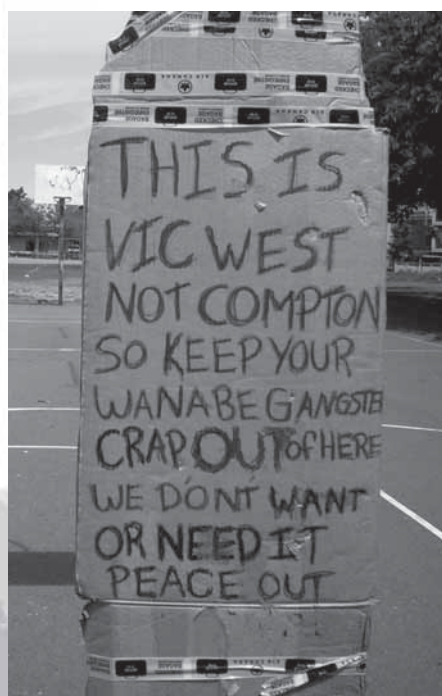 AIR CANADA
THIS IS
VIC WEST
NOT COMPTON
SO KEEP YOUR
WANABE GANGSTER
CRAP OUT OF HERE
WE DON'T WANT
OR NEED IT
PEACE OUT